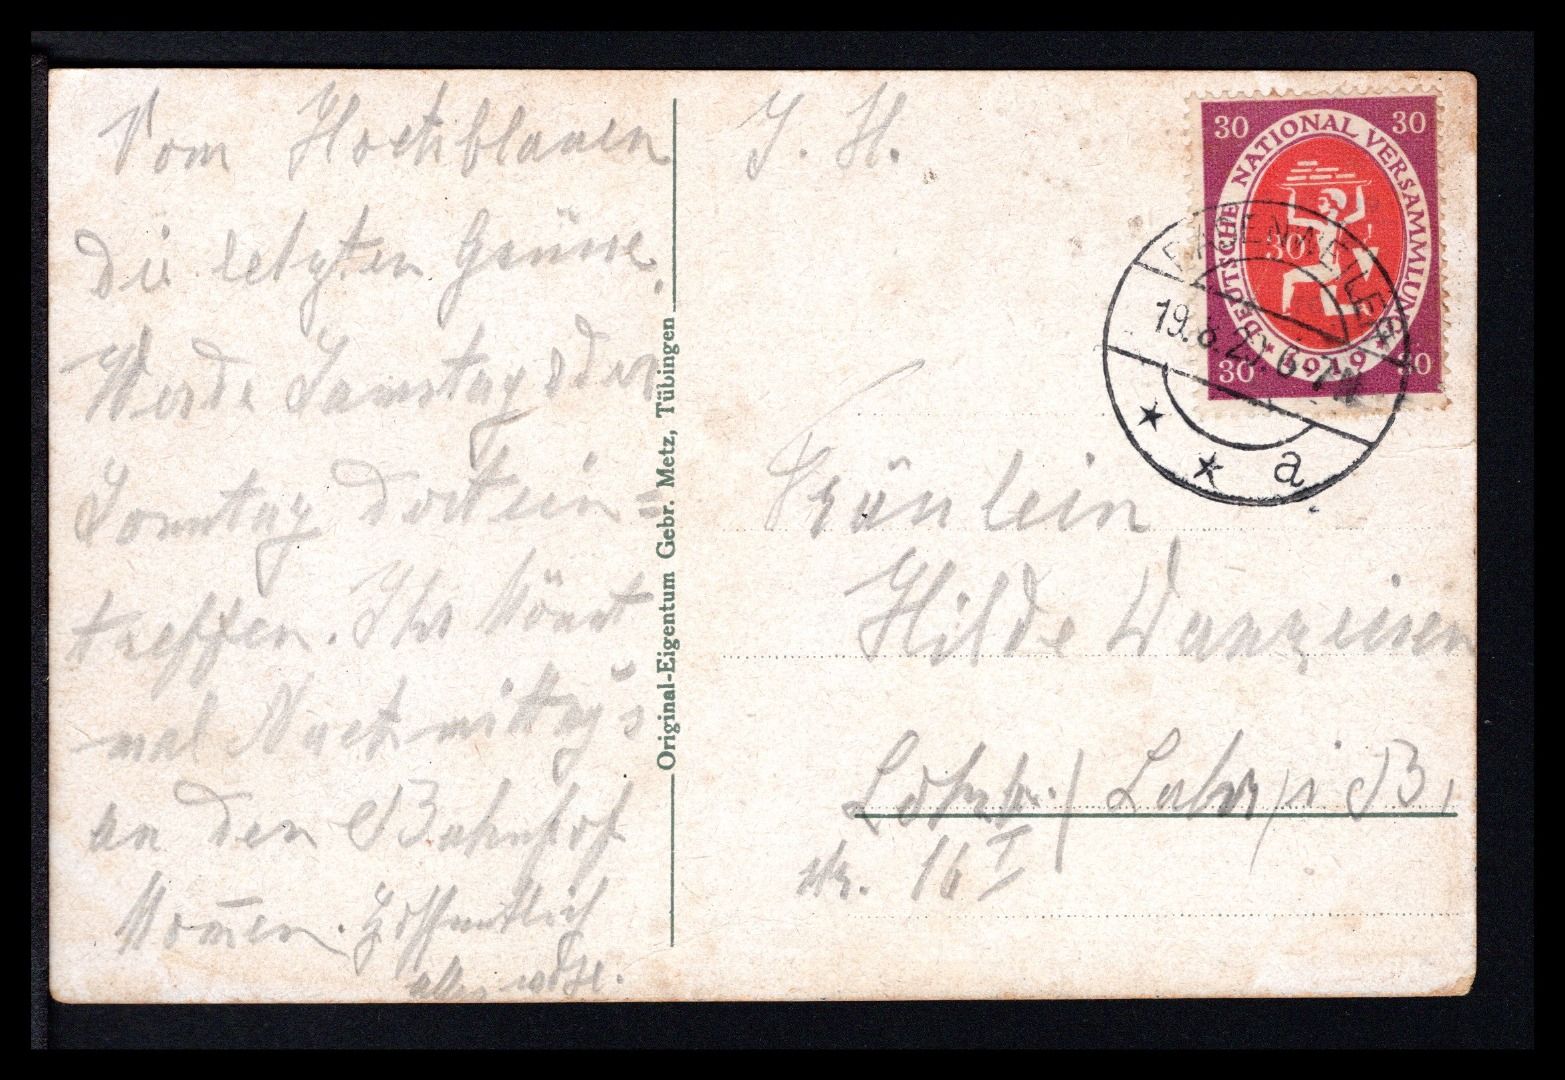 Vom Hochblauen
die letzten Grüsse.
Werde Samstag oder
Sonntag dort ein=
treffen. Ihr könnt
mal Nachmittags
an den Bahnhof
kom̅en. Hoffentlich
alles wohl.
Original-Eigentum Gebr. Metz, Tübingen
I. H.
30 30
DEUTSCHE NATIONAL VERSAMMLUNG
30
1919
30 30
BADENWEILER
19.8.20. 6-7 N
a
Fräulein
Hilde Wanzeisen
Lahr i B.
Nr. 16 I